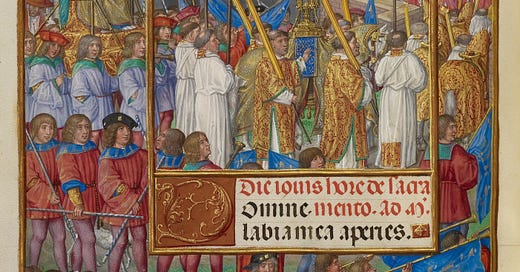 Die iouis hore de sacra
Domine. mento. Ad M.
labia mea aperies.